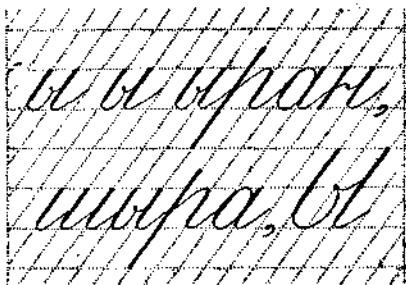 ы ы ыран,
шыра, Ы